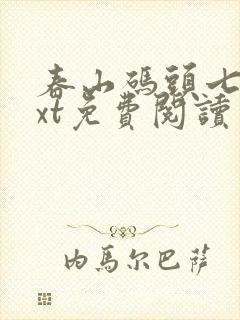 春山碼頭七
xt免費閱讀
內馬尔巴薩